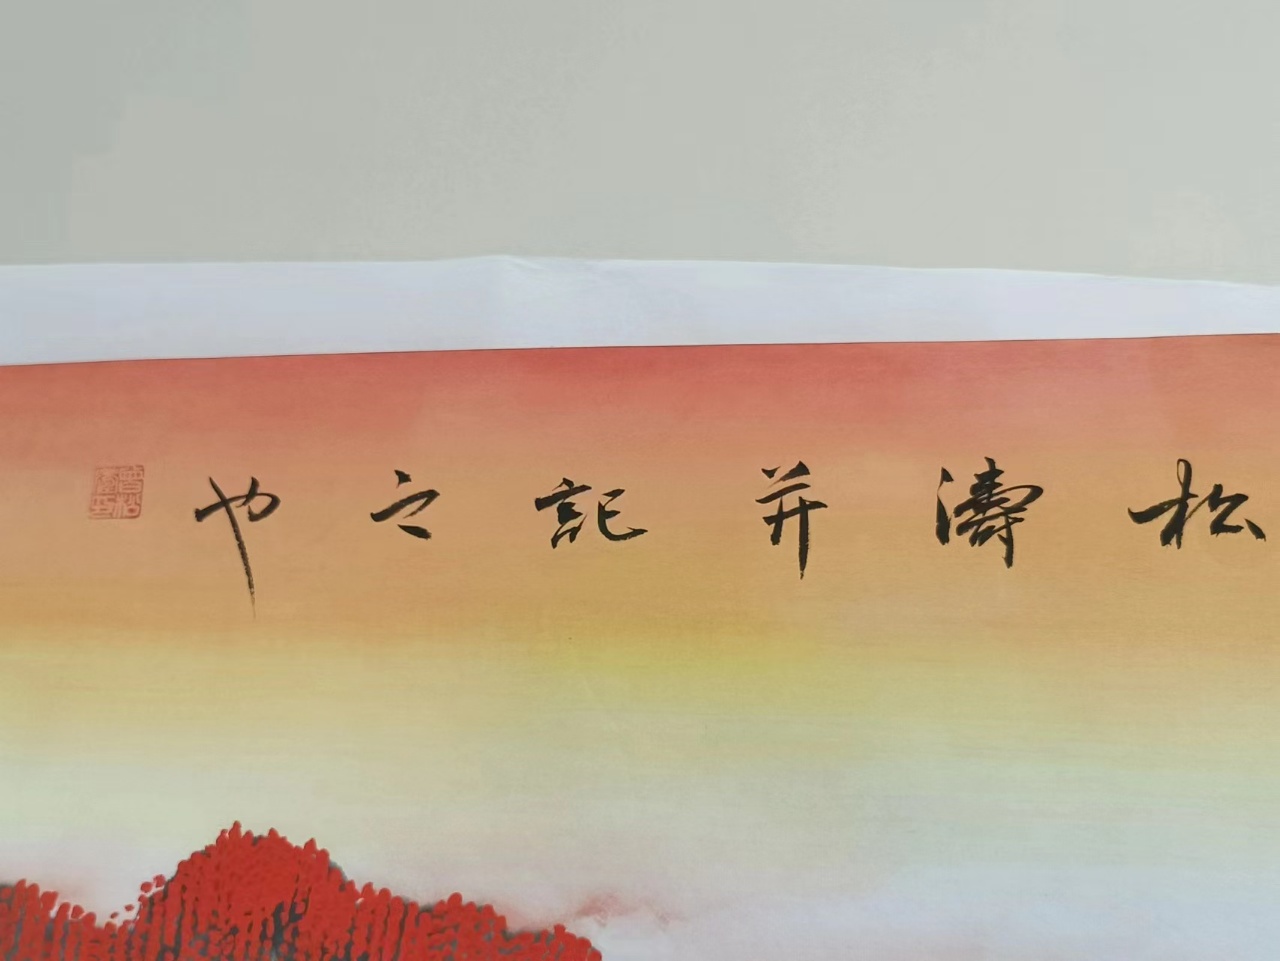 松濤并記之也